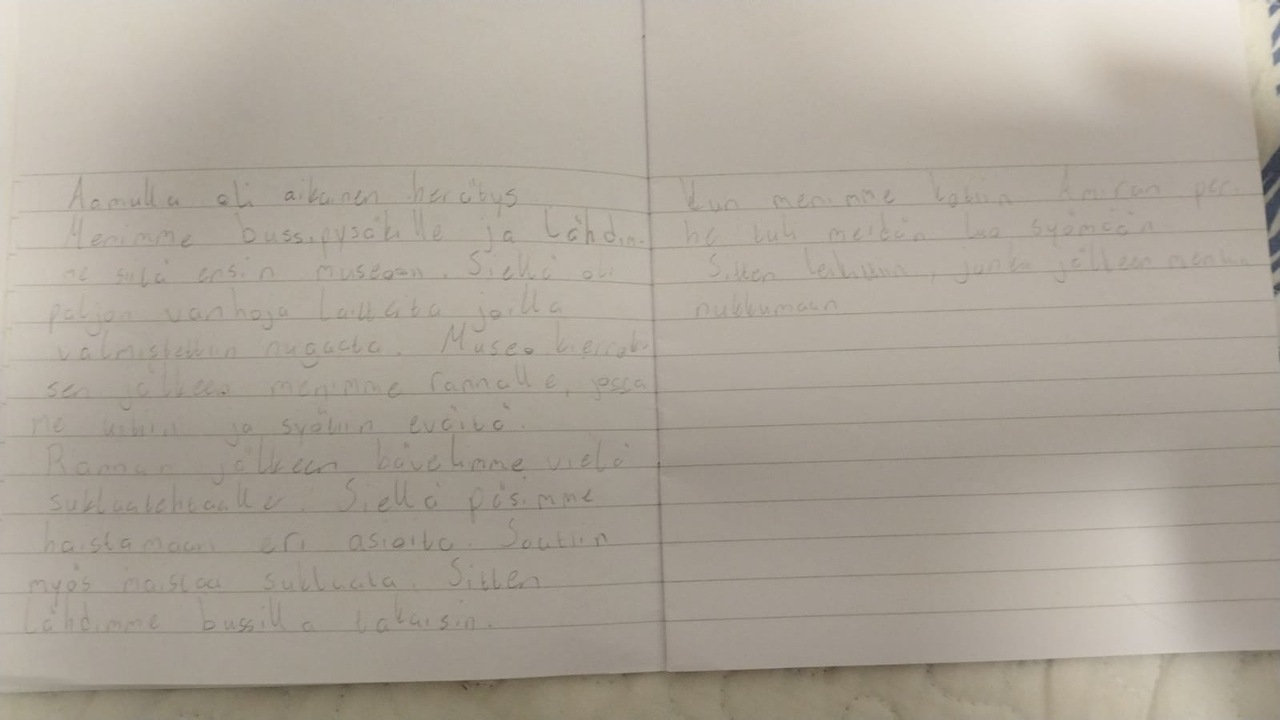 Aamulla oli aikanen herätys
Menimme bussipysäkille ja Lähdim-
me siitä ensin museoon. Siellä oli
paljon vanhoja Laitteita joilla
valmistettiin nugaata. Museo kierrok-
sen jälkeen menimme rannalle, jossa
me uitiin ja syötiin eväitä.
Rannan jälkeen kävelimme vielä
suklaatehtaalle. Siellä päsimme
haistamaan eri asioita. Saatiin
myös maistaa suklaata. Sitten
Lähdimme bussilla takaisin.
Kun menimme kotiin Amiran per-
he tuli meidän luo syömään
Sitten leikittiin, jonka jälkeen mentiin
nukkumaan